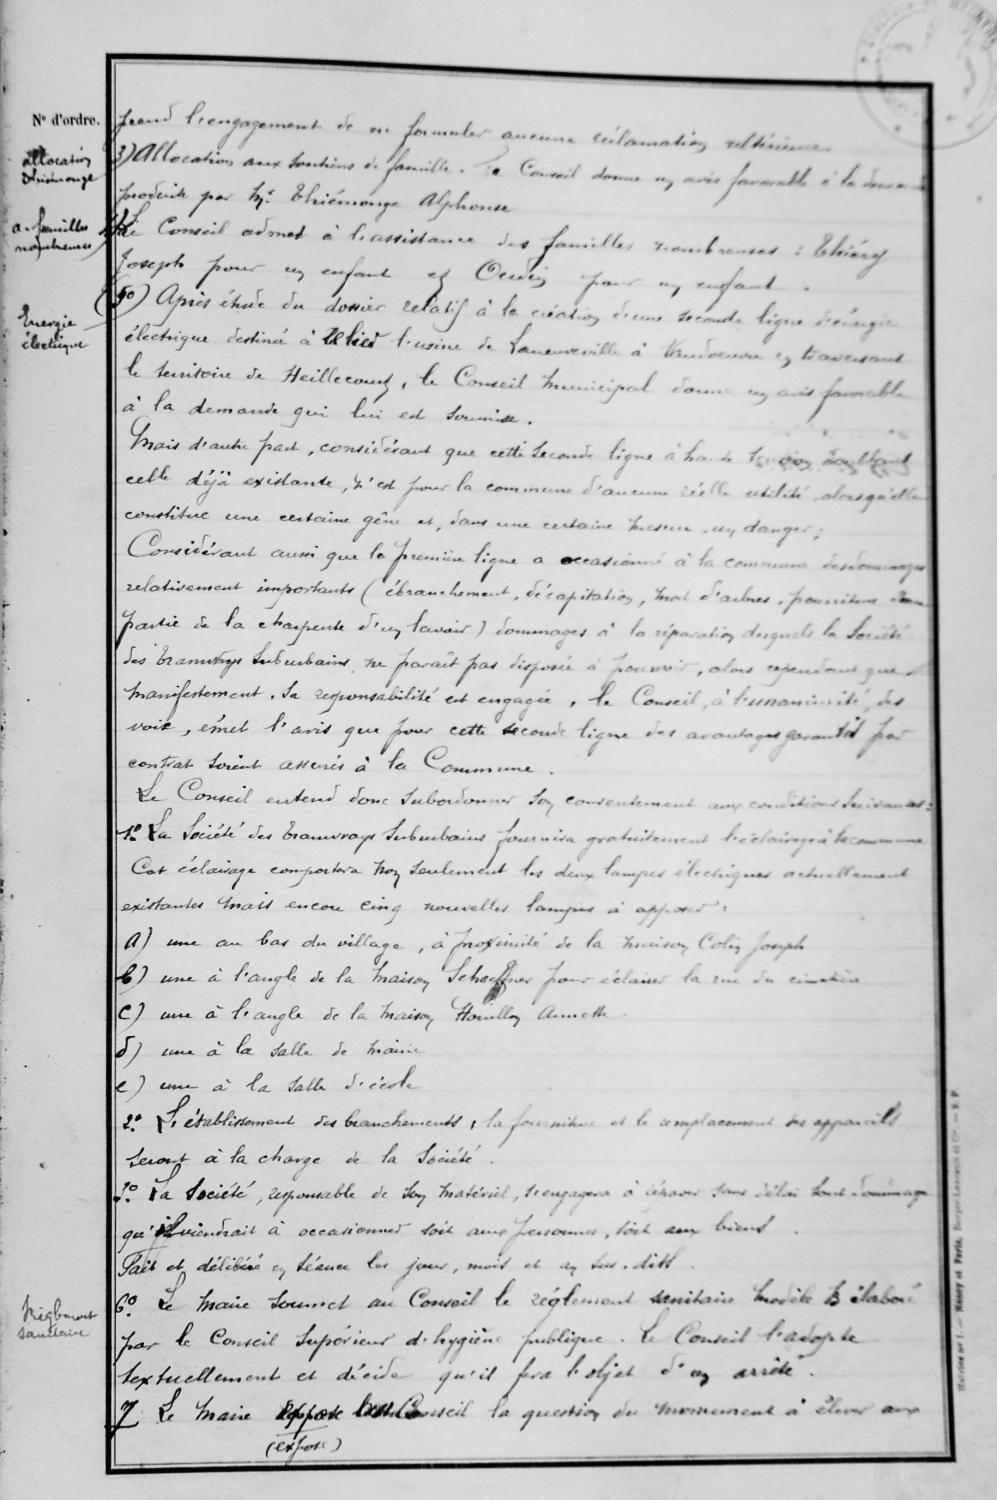 N° d'ordre.
prend l'engagement de ne formuler aucune réclamation ultérieure
allocation Thiémonge
3) Allocation aux soutiens de famille. Le Conseil donne un avis favorable à la demande
produite par Mr. Thiémonge Alphonse
a. familles nombreuses
4) Le Conseil admet à l'assistance des familles nombreuses : Thiéry
Joseph pour un enfant et Oudin pour un enfant.
Energie électrique
(5°) Après étude du dossier relatif à la création d'une seconde ligne d'énergie
électrique destinée à relier l'usine de Laneuveville à Vandoeuvre en traversant
le territoire de Heillecourt, le Conseil Municipal donne un avis favorable
à la demande qui lui est soumise.
Mais d'autre part, considérant que cette seconde ligne à haute tension doublant
celle déjà existante, n'est pour la commune d'aucune réelle utilité, alors qu'elle
constitue une certaine gêne et, dans une certaine mesure, un danger;
Considérant aussi que la première ligne a occasionné à la commune des dommages
relativement importants (ébranchement, décapitation, mort d'arbres, pourriture d'une
partie de la charpente d'un lavoir) dommages à la réparation desquels la Société
des Tramways Suburbains ne paraît pas disposée à pourvoir, alors cependant que
manifestement, sa responsabilité est engagée, le Conseil, à l'unanimité des
voix, émet l'avis que pour cette seconde ligne des avantages garantis par
contrat soient assurés à la Commune.
Le Conseil entend donc subordonner son consentement aux conditions suivantes :
1° La Société des Tramways Suburbains fournira gratuitement l'éclairage à la commune
Cet éclairage comportera non seulement les deux lampes électriques actuellement
existantes mais encore cinq nouvelles lampes à apposer :
a) une au bas du village, à proximité de la maison Colin Joseph
b) une à l'angle de la maison Schaeffner pour éclairer la rue du cimetière
c) une à l'angle de la maison Houillon Annette
d) une à la salle de mairie
e) une à la salle d'école
2° L'établissement des branchements, la fourniture et le remplacement des appareils
seront à la charge de la Société.
3° La Société, responsable de son matériel, s'engagera à réparer sans délai tout dommage
qu'il viendrait à occasionner soit aux personnes, soit aux biens.
Fait et délibéré en séance les jour, mois et an sus-dits.
Règlement sanitaire
6° Le Maire soumet au Conseil le règlement sanitaire modèle B élaboré
par le Conseil Supérieur d'hygiène publique. Le Conseil l'adopte
textuellement et décide qu'il fera l'objet d'un arrêté.
7 Le Maire expose au Conseil la question du monument à élever aux
(expose)